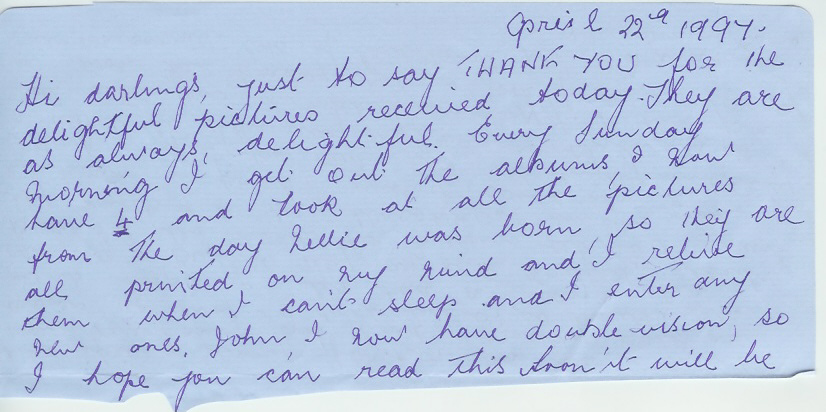 April 22nd 1997.
Hi darlings, just to say THANK YOU for the
delightful pictures received today. They are
as always, delightful. Every Sunday
morning I get out the albums, I now
have 4 and look at all the pictures
from the day Nellie was born, so they are
all printed on my mind and I relive
them when I can't sleep and I enter any
new ones. John I now have double vision, so
I hope you can read this it will be